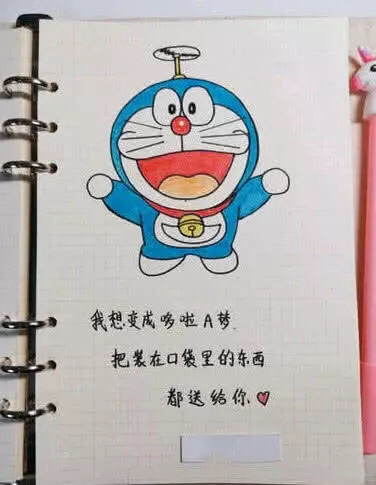 我想变成哆啦A梦.
把装在口袋里的东西
都送给你